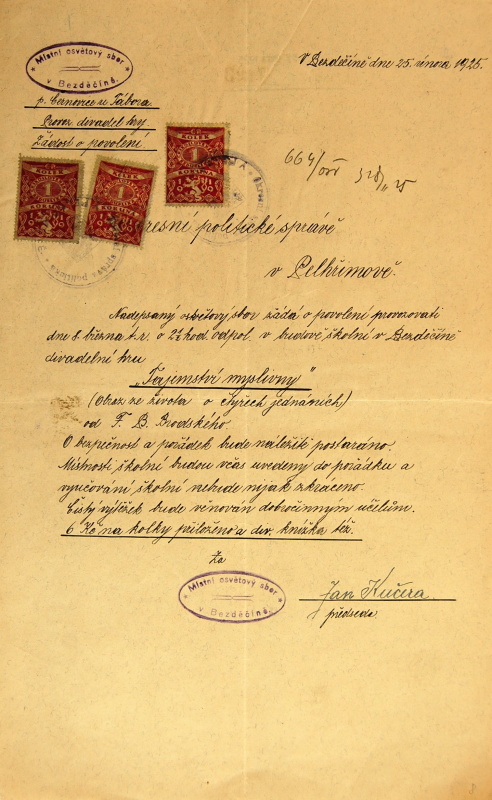 V Bezděčíně dne 25. února 1925.
Místní osvětový sbor
v Bezděčíně.
p. Černovice u Tábora
Provoz. divadel. hry.
Žádost o povolení
664/osv
ČP.
KOLEK
1
KORUNA
KOLEK
1
KORUNA
KOLEK
1
KORUNA
resní politické správě
v Pelhřimově.
Nadepsaný osvětový sbor žádá o povolení provozovati
dne 8. března t.r. o hod. odpol. v budově školní v Bezděčíně
divadelní hru
„Tajemství myslivny"
(Obraz ze života o čtyřech jednáních)
od F. B. Brodského.
O bezpečnost a pořádek bude náležitě postaráno.
Místnosti školní budou včas uvedeny do pořádku a
vyučování školní nebude nijak zkráceno.
Čistý výtěžek bude věnován dobročinným účelům.
6 Kč na kolky přiloženo a div. knížka též.
Za
Místní osvětový sbor
v Bezděčíně.
Jan Kučera.
předseda